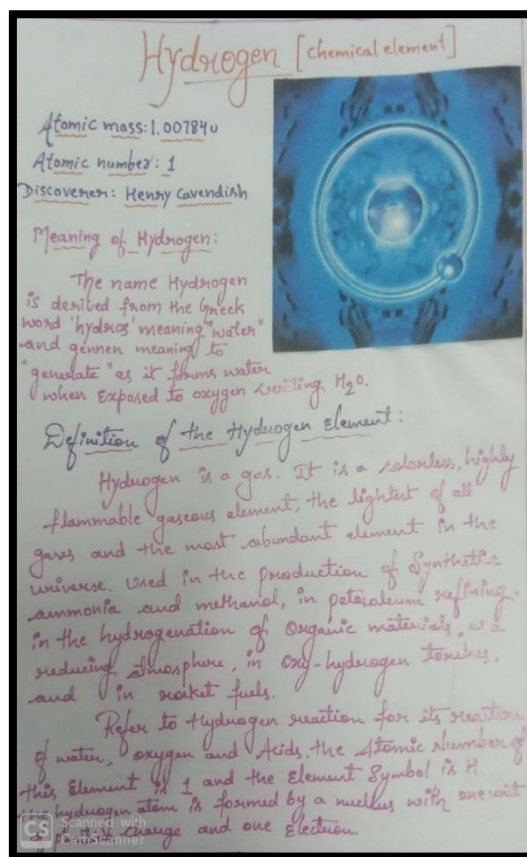 Hydrogen [chemical element]
Atomic mass: 1.00784u
Atomic number: 1
Discoverer: Henry Cavendish
Meaning of Hydrogen:
The name Hydrogen
is derived from the Greek
word 'hydros' meaning "water"
and gennen meaning to
"generate" as it forms water
when Exposed to oxygen creating H₂O.
Definition of the Hydrogen Element:
Hydrogen is a gas. It is a colorless, highly
flammable gaseous element, the lightest of all
gases and the most abundant element in the
universe. Used in the production of Synthetic
ammonia and methanol, in petroleum refining,
in the hydrogenation of Organic materials, as a
reducing atmosphere, in Oxy-hydrogen torches,
and in rocket fuels.
Refer to Hydrogen reaction for its reaction
of water, oxygen and Acids. the Atomic Number of
this Element is 1 and the Element Symbol is H.
the hydrogen atom is formed by a nucleus with one unit
of positive charge and one Electron.
CS Scanned with
CamScanner